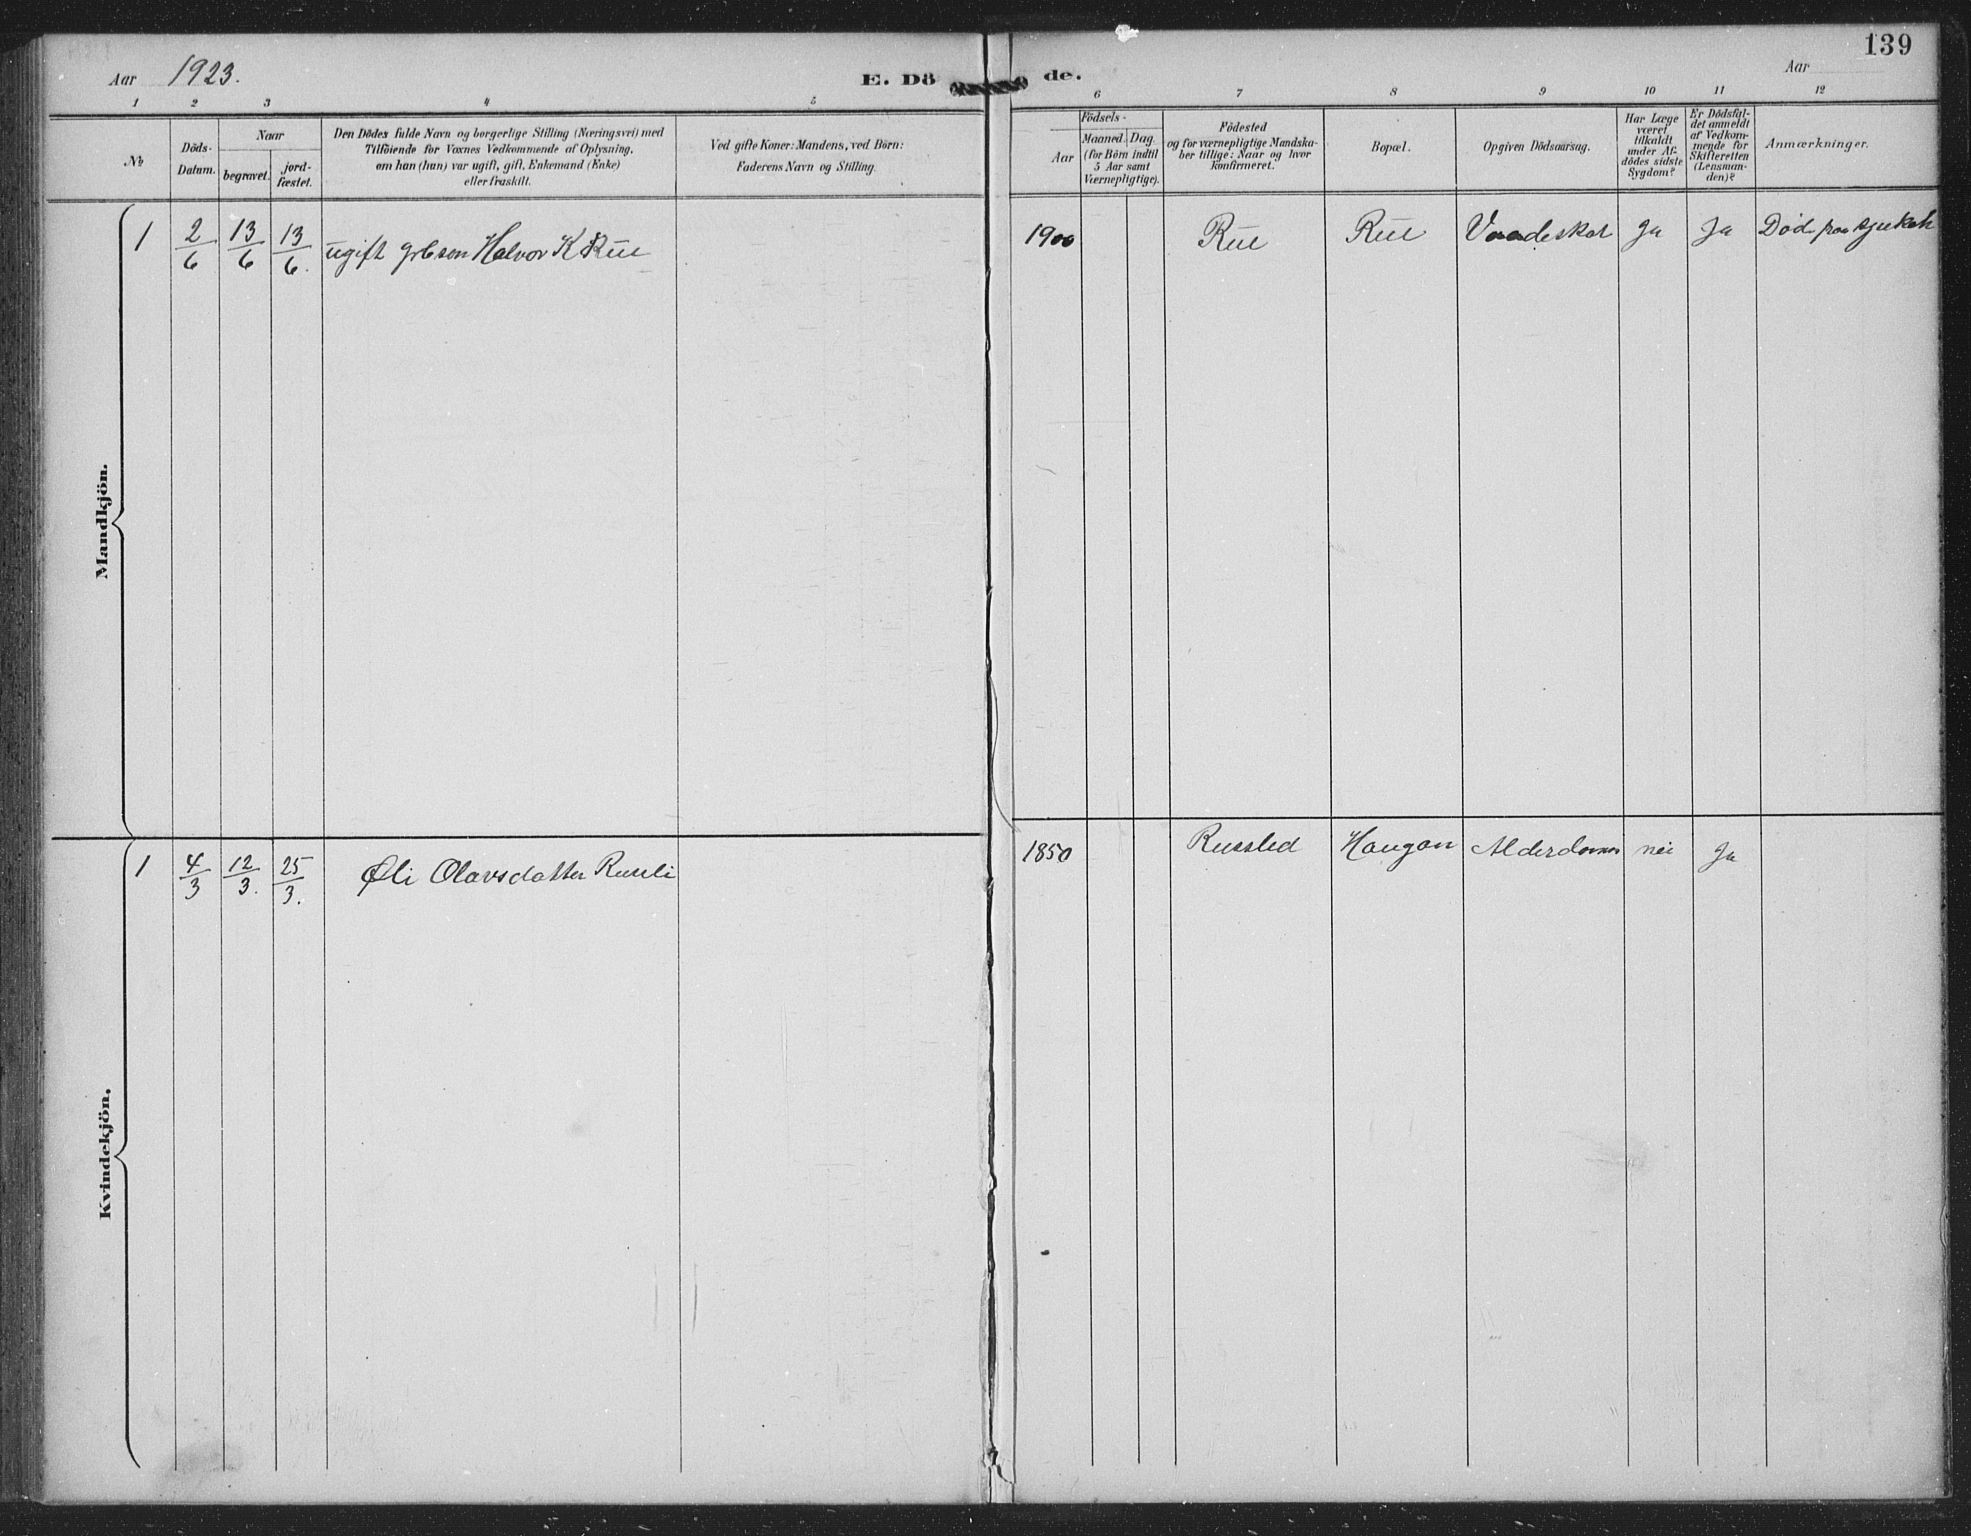 139
Aar 1923. E. Dö de. Aar
1 2 3 4 5 6 7 8 9 10 11 12
No
Döds-
Datum.
Naar
begravet.
jord-
fæstet.
Den Dödes fulde Navn og borgerlige Stilling (Næringsvei) med
Tilföiende for Voxnes Vedkommende af Oplysning,
om han (hun) var ugift, gift, Enkemand (Enke)
eller fraskilt.
Ved gifte Koner: Mandens, ved Börn:
Faderens Navn og Stilling.
Födsels-
Aar
Maaned. Dag.
(for Börn indtil
5 Aar samt
Værnepligtige).
Födested
og for værnepligtige Mandska-
ber tillige: Naar og hvor
konfirmeret.
Bopæl.
Opgiven Dödsaarsag.
Har Læge
været
tilkaldt
under Af-
dödes sidste
Sygdom?
Er Dödsfal-
det anmeldt
af Vedkom-
mende for
Skifteretten
(Lensman-
den)?
Anmærkninger.
Mandkjön.
1 2/6 13/6 13/6. ugift grbson Halvor K Rue 1900 Rue Rue Vaadeskot Ja Ja Död paa
Kvindekjön.
1 4/3 12/3. 25/3. Øli Olavsdatter 1850 Haugan nei Ja